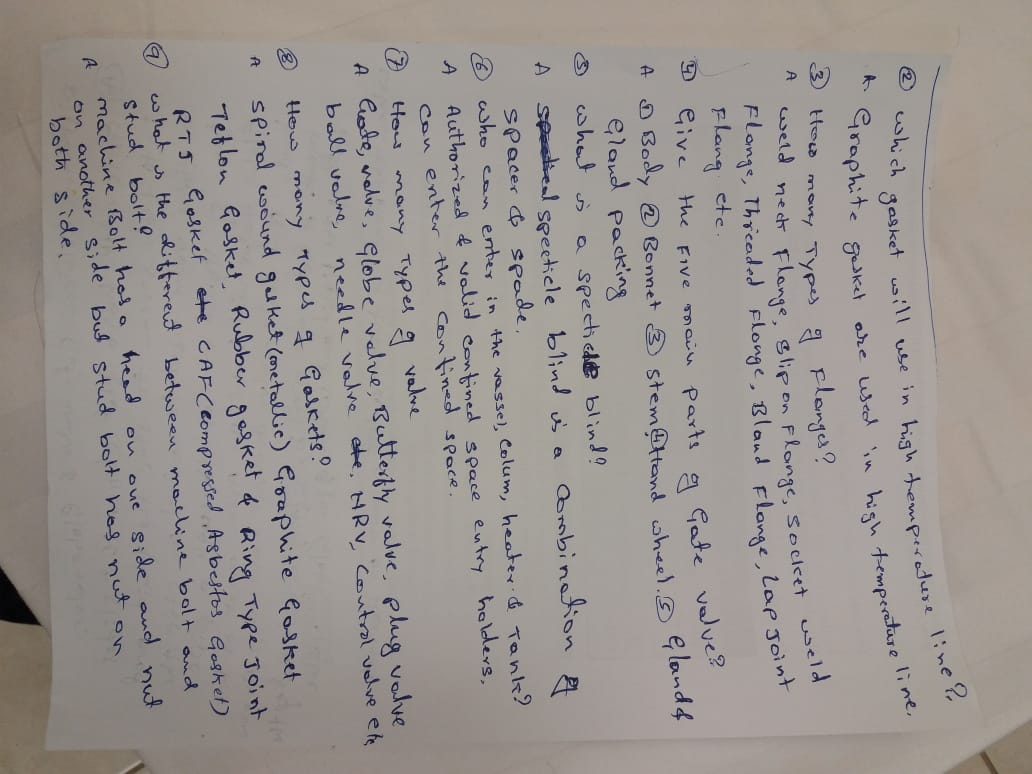 ② Which gasket will use in high temperature line?
A Graphite gasket are used in high temperature line.
③ How many Types of Flanges?
A Weld neck Flange, Slip on Flange, Socket weld
Flange, Thrieaded Flange, Bland Flange, Lap Joint
Flang etc.
④ Give the Five main parts of Gate valve?
A ① Body ② Bonnet ③ Stem ④ Hand wheel. ⑤ Gland &
Gland packing
⑤ What is a specticle blind?
A specticle blind is a combination of
spacer & spade.
⑥ Who can enter in the vassel, Colum, heater & Tank?
A Authorized & valid confined space entry holders,
can enter the confined space.
⑦ How many Types of valve
A Gate, valve, Globe valve, Butterfly valve, plug valve
ball valve, needle valve NRV, Control valve etc
⑧ How many Types of Gaskets?
A spiral wound gasket (metallic) Graphite Gasket
Teflon Gasket, Rubber gasket & Ring Type Joint
RTJ Gasket CAF (Compressed Asbestos Gasket)
⑨ What is the different between machine bolt and
stud bolt?
A machine Bolt has a head on one side and nut
on another side but stud bolt has nut on
both side.